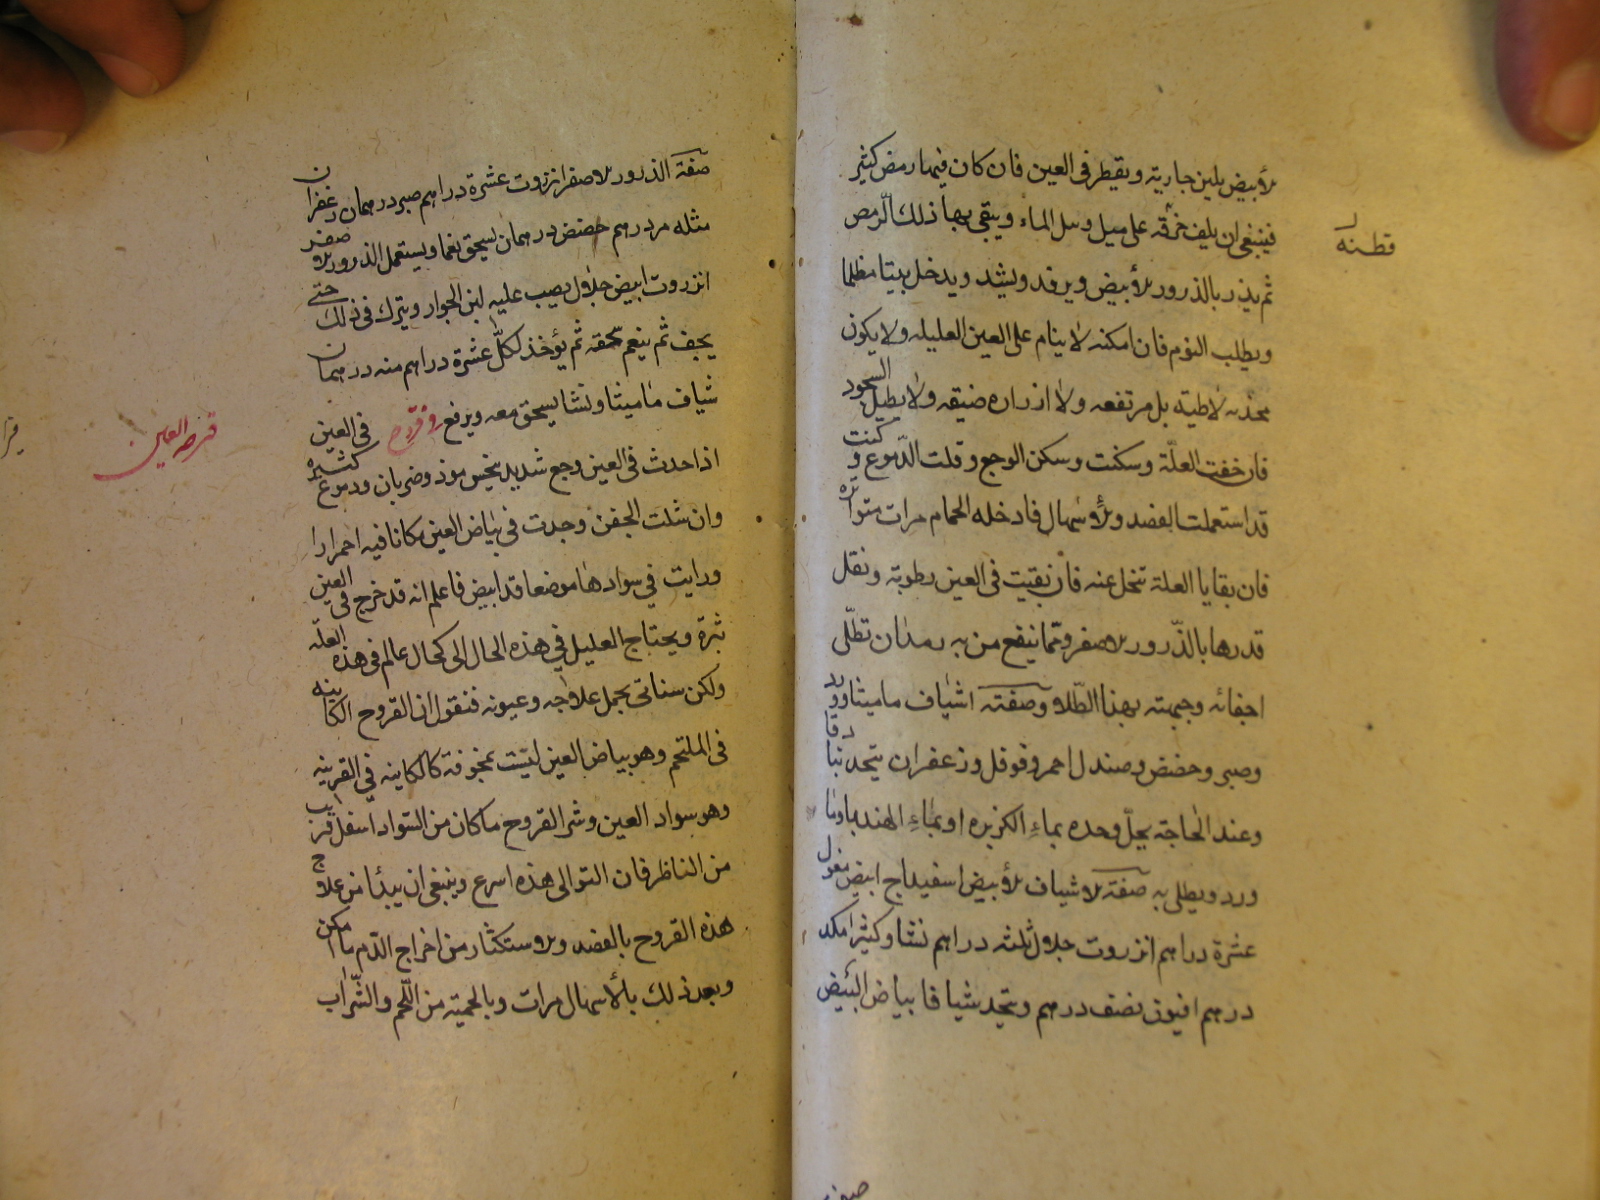 الأبيض بلبن جارية ويقطر فى العين فان كان فيها رمص كثير
فينبغى ان يلف خرقه على ميل وبل الماء وينقى بها ذلك الرمص
قطنه
ثم يذر بالذرور الأبيض ويرفد ويشد ويدخل بيتا مظلما
ويطلب النوم فان امكنه لا ينام على العين العليله ولا يكون
مخدته لاطيه بل مرتفعه ولا ازراره ضيقه ولا يطيل السجود
فان خفت العلّة وسكنت وسكن الوجع وقلت الدّموع وكنت
قد استعملت الفصد والأسهال فادخله الحمام مرات متواتره
فان بقايا العلة تنحل عنه فان بقيت فى العين رطوبة وثقل
قدرها بالذّرور الاصفر ومّما ينفع من به رمد ان تطلّى
اجفانه وجبهته بهذا الطّلاء وصفته اشياف ماميثا وورد
وصبر وحضض وصندل احمر وفوفل وزعفران يتخذ بنادقا
وعند الحاجة يحلّ وحده بماء الكزبره او بماء الهندبا وما
ورد ويطلى به صفة الاشياف الأبيض اسفيداج ابيض مغسول
عشرة دراهم انزروت جلال ثلثه دراهم نشا وكثيرا مكد
درهم افيون نصف درهم ويتخذ شيافا ببياض البيض
صفة الذرور الاصفر انزروت عشرة دراهم صبر درهمان زعفران
مثله مر درهم حضض درهمان يسحق نعما ويستعمل الذرور الاصفر
انزروت ابيض جلال يصب عليه لبن الجوار ويترك فى ذلك حتى
يجف ثم ينعم سحقه ثم يؤخذ لكلّ عشرة دراهم منه درهمان
شياف ماميثا ونشا يسحق معه ويرفع وقروح فى العين
قرحه العين
اذا حدث فى العين وجع شديد بنخس موذ وضربان ودموع كثيره
وان شلت الجفن وجدت فى بياض العين مكانا فيه احمرارا
ورايت في سوادها موضعا قد ابيض فاعلم انه قد خرج فى العين
بثرة ويحتاج العليل فى هذه الحال الى كحال عالم فى هذه العلّه
ولكن سناتى بجمل علاجه وعيونه فنقول ان القروح الكاينه
فى الملتحم وهو بياض العين ليست بمخوفة كالكاينه في القرنيه
وهو سواد العين وشر القروح ما كان من السواد اسفل قريب
من الناظر فان التوالى هذه اسرع وينبغى ان يبدأ من علاج
هذه القروح بالفصد والاستكثار من اخراج الدّم ما امكن
وبعد ذلك بالأسهال مرات وبالحمية من اللّحم والشّراب